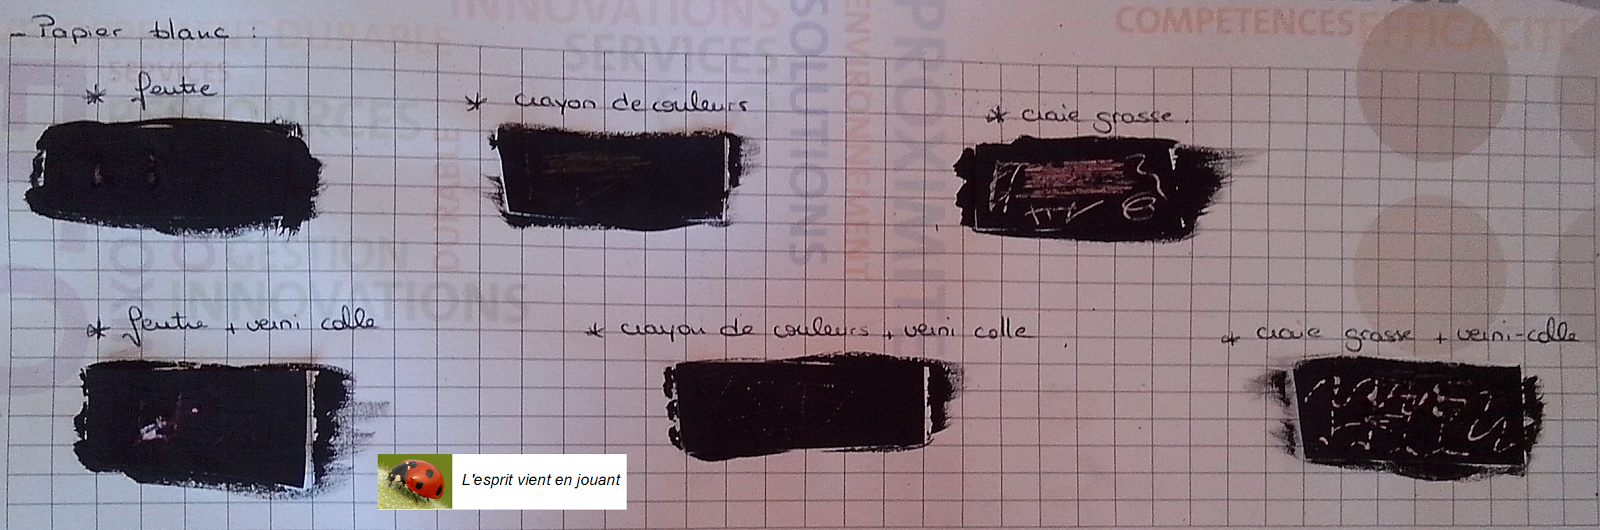 INNOVATIONS
COMPETENCES EFFICACITE
- Papier blanc :
DURABLE
SERVICES
SERVICES
SOLUTIONS
ENVIRONNEMENT
PROXIMITE
* feutre
* crayon de couleurs
* craie grasse.
DURABLE
GESTION
INNOVATIONS
* feutre + verni colle
* crayon de couleurs + verni colle
* craie grasse + verni-colle
L'esprit vient en jouant